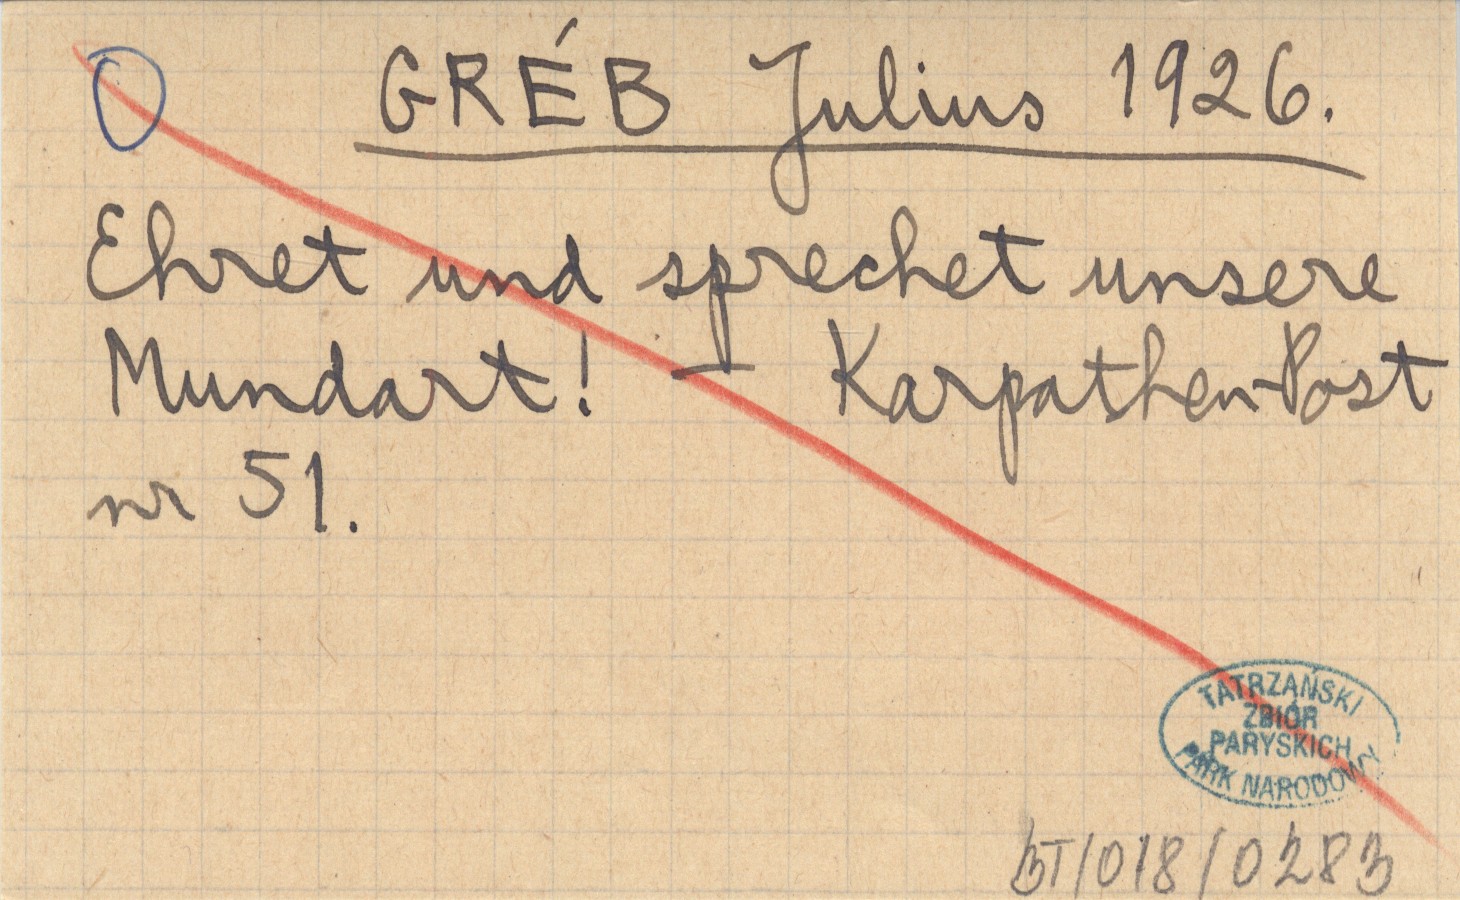 GRÉB Julius 1926.
Ehret und sprechet unsere
Mundart! – Karpathen-Post
nr 51.
TATRZAŃSKI
ZBIÓR
PARYSKICH
PARK NARODOWY
BT/018/0283